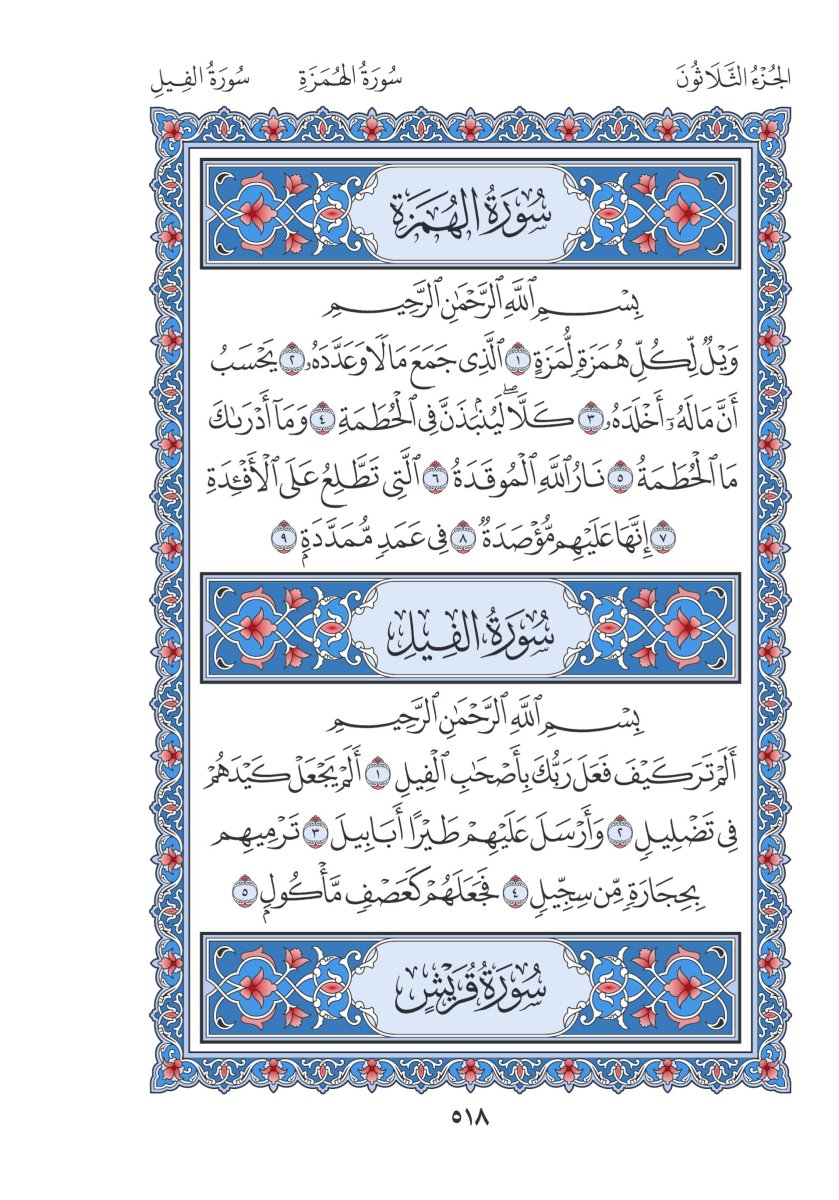 الجُزْءُ الثَّلَاثُونَ سُورَةُ الهُمَزَةِ سُورَةُ الفِيلِ
سُورَةُ الهُمَزَةِ
بِسْمِ ٱللَّهِ ٱلرَّحْمَٰنِ ٱلرَّحِيمِ
وَيْلٌ لِّكُلِّ هُمَزَةٍ لُّمَزَةٍ ١ ٱلَّذِى جَمَعَ مَالًا وَعَدَّدَهُۥ ٢ يَحْسَبُ
أَنَّ مَالَهُۥٓ أَخْلَدَهُۥ ٣ كَلَّاۖ لَيُنۢبَذَنَّ فِى ٱلْحُطَمَةِ ٤ وَمَآ أَدْرَىٰكَ
مَا ٱلْحُطَمَةُ ٥ نَارُ ٱللَّهِ ٱلْمُوقَدَةُ ٦ ٱلَّتِى تَطَّلِعُ عَلَى ٱلْأَفْـِٔدَةِ
٧ إِنَّهَا عَلَيْهِم مُّؤْصَدَةٌ ٨ فِى عَمَدٍ مُّمَدَّدَةٍۭ ٩
سُورَةُ الفِيلِ
بِسْمِ ٱللَّهِ ٱلرَّحْمَٰنِ ٱلرَّحِيمِ
أَلَمْ تَرَ كَيْفَ فَعَلَ رَبُّكَ بِأَصْحَٰبِ ٱلْفِيلِ ١ أَلَمْ يَجْعَلْ كَيْدَهُمْ
فِى تَضْلِيلٍ ٢ وَأَرْسَلَ عَلَيْهِمْ طَيْرًا أَبَابِيلَ ٣ تَرْمِيهِم
بِحِجَارَةٍ مِّن سِجِّيلٍ ٤ فَجَعَلَهُمْ كَعَصْفٍ مَّأْكُولٍۭ ٥
سُورَةُ قُرَيْشٍ
٥١٨